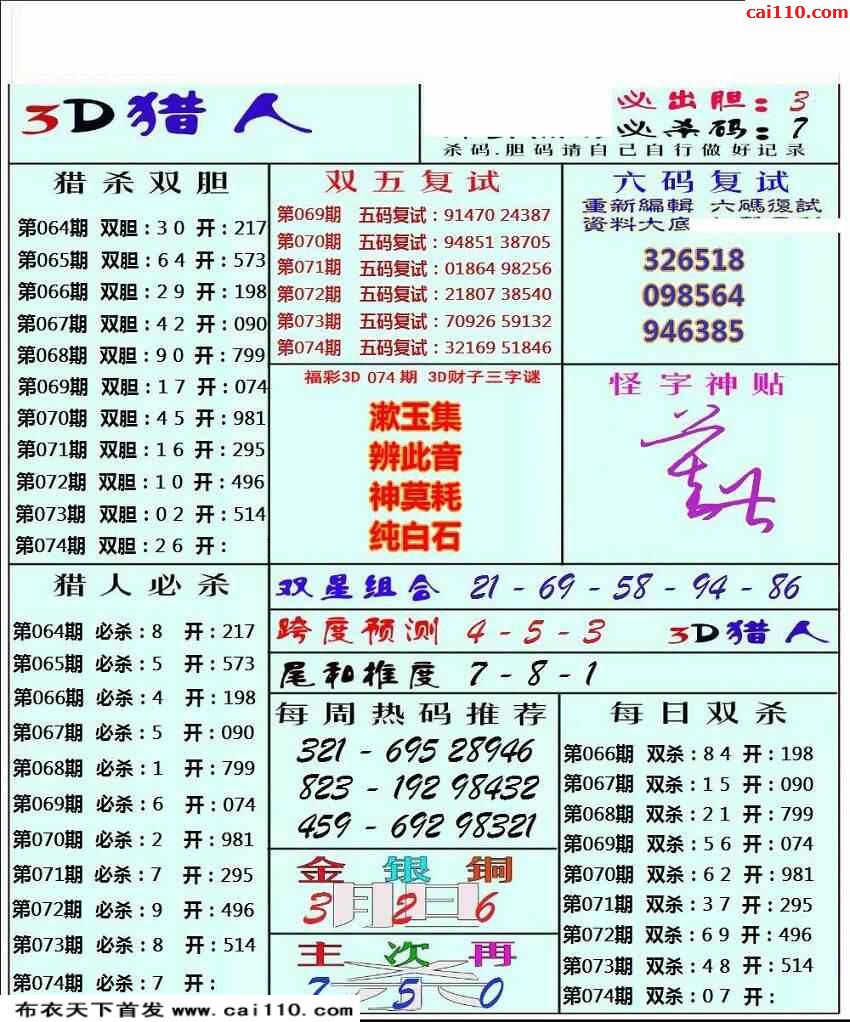 cai110.com
3D猎人
必出胆：3
必杀码：7
杀码.胆码请自己自行做好记录
猎杀双胆
第064期 双胆：30 开：217
第065期 双胆：64 开：573
第066期 双胆：29 开：198
第067期 双胆：42 开：090
第068期 双胆：90 开：799
第069期 双胆：17 开：074
第070期 双胆：45 开：981
第071期 双胆：16 开：295
第072期 双胆：10 开：496
第073期 双胆：02 开：514
第074期 双胆：26 开：
双五复试
第069期 五码复试：91470 24387
第070期 五码复试：94851 38705
第071期 五码复试：01864 98256
第072期 五码复试：21807 38540
第073期 五码复试：70926 59132
第074期 五码复试：32169 51846
六码复试
重新編輯 六碼復試
資料大底
326518
098564
946385
福彩3D 074期 3D财子三字谜
漱玉集
辨此音
神莫耗
纯白石
怪字神贴
猎人必杀
第064期 必杀：8 开：217
第065期 必杀：5 开：573
第066期 必杀：4 开：198
第067期 必杀：5 开：090
第068期 必杀：1 开：799
第069期 必杀：6 开：074
第070期 必杀：2 开：981
第071期 必杀：7 开：295
第072期 必杀：9 开：496
第073期 必杀：8 开：514
第074期 必杀：7 开：
双星组合 21-69-58-94-86
跨度预测 4-5-3 3D猎人
尾和推度 7-8-1
每周热码推荐
321-695 28946
823-192 98432
459-692 98321
金 银 铜
3 2 6
主 次 再
7 5 0
每日双杀
第066期 双杀：84 开：198
第067期 双杀：15 开：090
第068期 双杀：21 开：799
第069期 双杀：56 开：074
第070期 双杀：62 开：981
第071期 双杀：37 开：295
第072期 双杀：69 开：496
第073期 双杀：48 开：514
第074期 双杀：07 开：
布衣天下首发 www.cai110.com